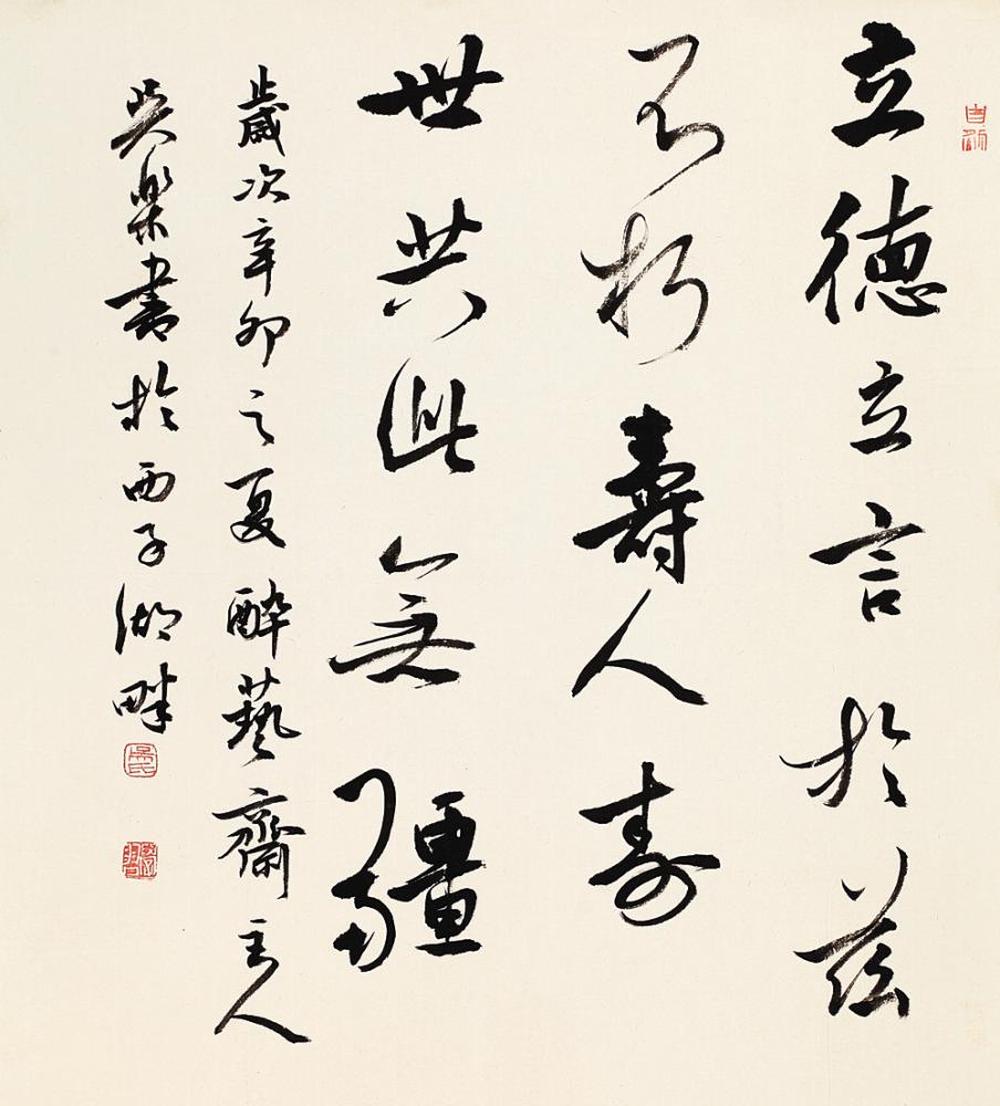 立德立言於茲
不朽壽人寿
世共此無疆
歲次辛卯之夏醉藝齋主人
吴樂書於西子湖畔
吳氏